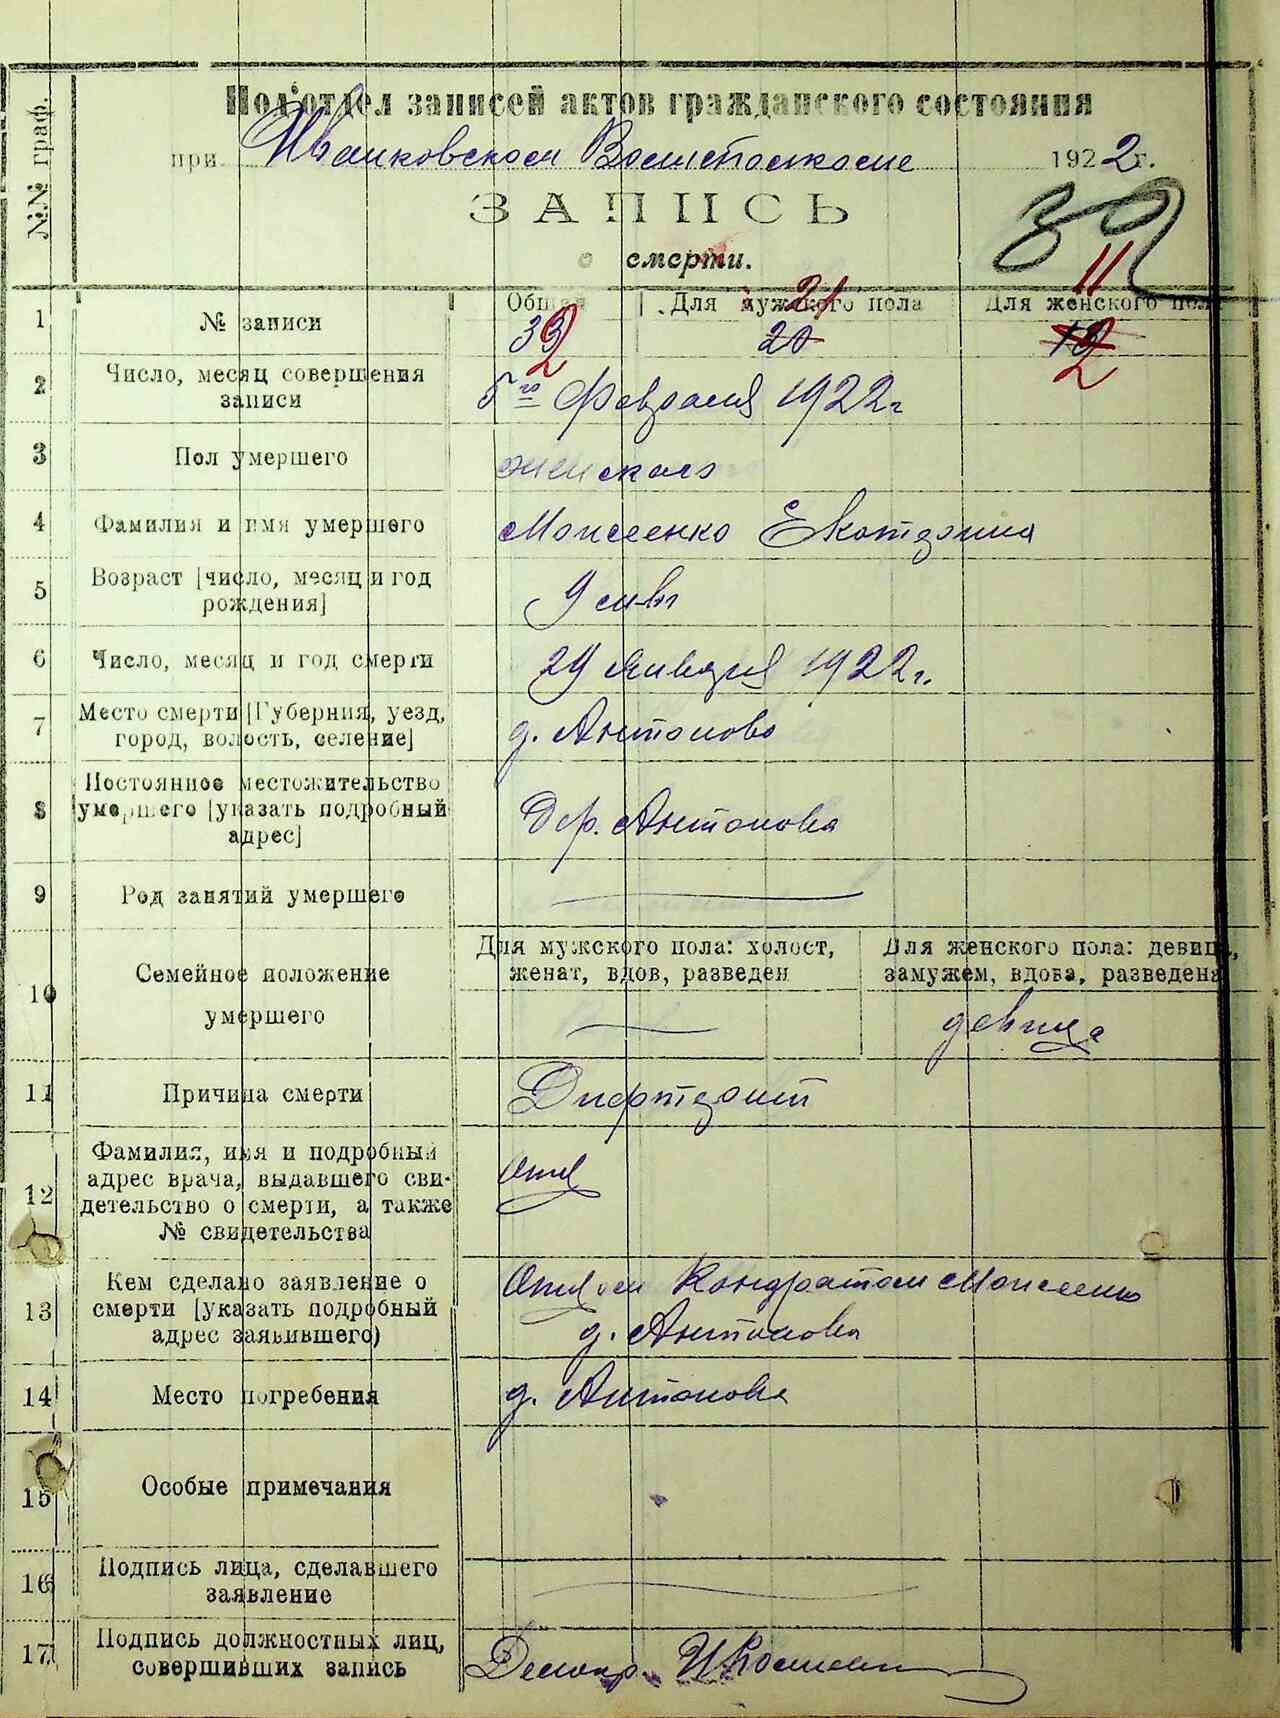 №№ граф.
Подотдел записей актов гражданского состояния
при Иванковском Волисполкоме 1922 г.
ЗАПИСЬ
о смерти.
39
11
1 № записи Общая Для мужского пола Для женского пола
21
32 20 12
2 Число, месяц совершения
записи
5го Февраля 1922 г
3 Пол умершего женского
4 Фамилия и имя умершего Моисеенко Екатерина
5 Возраст [число, месяц и год
рождения]
9
6 Число, месяц и год смерти 29 Января 1922 г.
7 Место смерти [Губерния, уезд,
город, волость, селение]
д. Антоново
8 Постоянное местожительство
умершего [указать подробный
адрес]
Дер. Антонова
9 Род занятий умершего
10 Семейное положение
умершего
Для мужского пола: холост,
женат, вдов, разведен
Для женского пола: девица,
замужем, вдова, разведена
девица
11 Причина смерти Дифтерит
12 Фамилия, имя и подробный
адрес врача, выдавшего сви-
детельство о смерти, а также
№ свидетельства
13 Кем сделано заявление о
смерти [указать подробный
адрес заявившего)
Отцом Кондратом Моисеенко
д. Антонова
14 Место погребения д. Антонова
15 Особые примечания
16 Подпись лица, сделавшего
заявление
17 Подпись должностных лиц,
совершивших запись